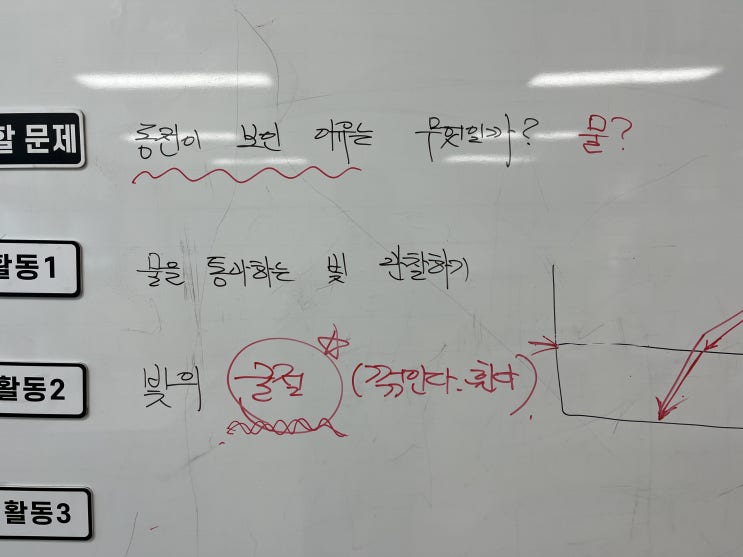 할 문제 동전이 보인 이유는 무엇일까? 물?
활동1 물을 통과하는 빛 관찰하기
활동2 빛의 굴절 (꺾인다. 휜다)
활동3